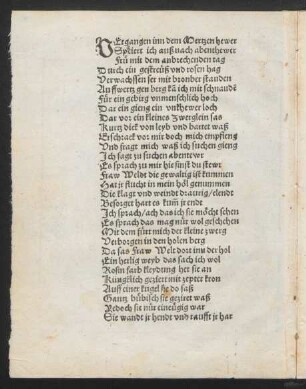 VErgangen inn dem Mertzen hewer
Spaciert ich auß nach abenthewer
Frü mit dem anbrechenden tag
Durch ein gestreüß vnd rosen hag
Verwachssen ser mit dronber stauden
Auffwertz gen berg kā ich mit schnaudē
Für ein gebirg vnmenschlich hoch
Dar ein gieng ein vnghewer loch
Dar vor ein kleines Zwerglein sas
Kurtz dick von leyb vnd hartet waß
Erschrack vor mir doch mich empfieng
Vnd fragt mich waß ich suchen gieng
Ich sagt zu suchen abentewr
Es sprach zu mir hie findstu stewr
Fraw Weldt die gewaltig ist kummen
Hat jr flucht in mein höl genummen
Die klagt vnd weindt traurig/ elendt
Besorget hart es kum jr endt
Ich sprach/ ach das ich sie möcht sehen
Es sprach das mag nur wol geschehen
Mit dem fürt mich der kleine zwerg
Verborgen in den holen berg
Da sas Fraw Welt dort inn der hol
Ein herlig weyb das sach ich wol
Rosin farb kleydung het sie an
Künigklich geziert mit zepter kron
Auff einer kugel sie do saß
Gantz hübisch sie geziert waß
Yedoch sie nur eineügig war
Sie wandt jr hendt vnd raufft jr har